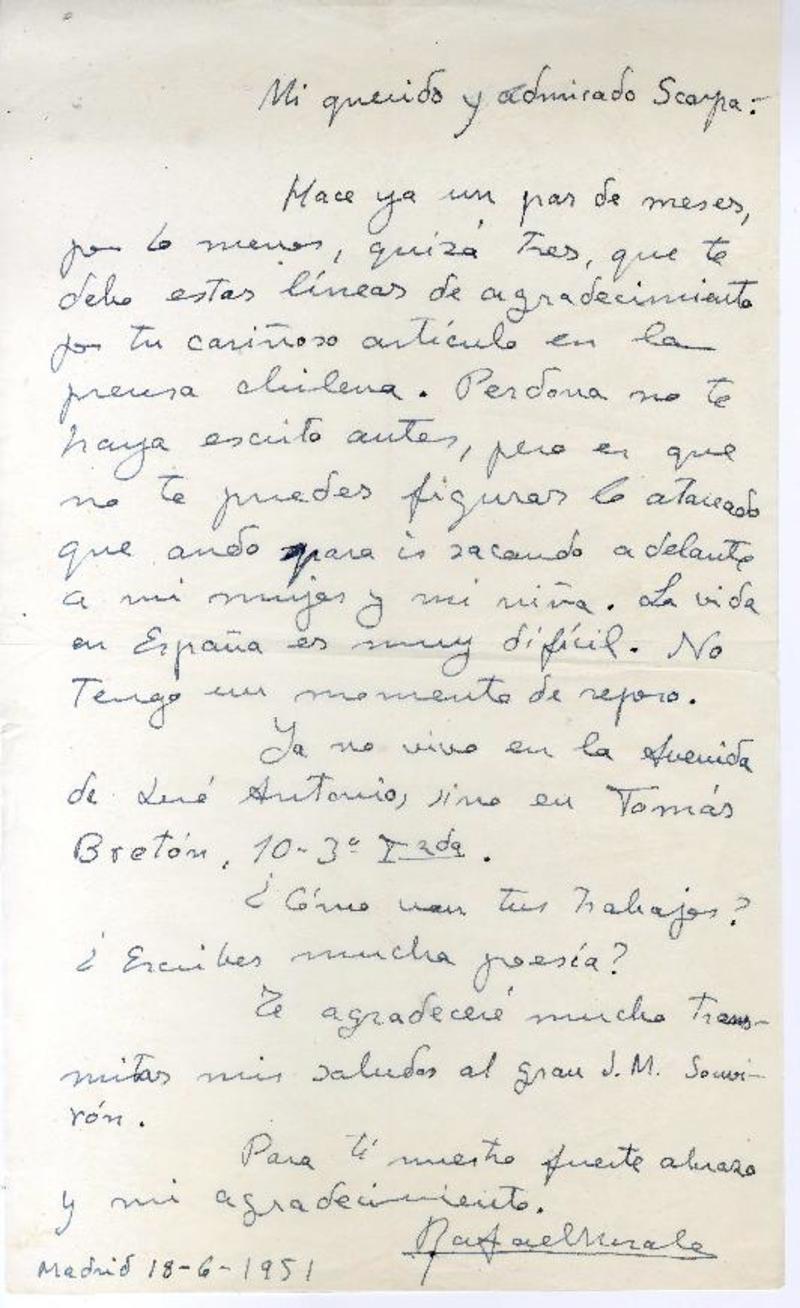 Mi querido y admirado Scarpa:
Hace ya un par de meses,
por lo menos, quizá tres, que te
debo estas líneas de agradecimiento
por tu cariñoso artículo en la
prensa chilena. Perdona no te
haya escrito antes, pero es que
no te puedes figurar lo atareado
que ando para ir sacando adelante
a mi mujer y mi niña. La vida
en España es muy difícil. No
tengo un momento de reposo.
Ya no vivo en la Avenida
de José Antonio, sino en Tomás
Bretón, 10-3º Izqda.
¿Cómo van tus trabajos?
¿Escribes mucha poesía?
Te agradeceré mucho trans-
mitas mis saludos al gran J. M. Souvi-
rón.
Para tí nuestro fuerte abrazo
y mi agradecimiento.
Rafael Morales
Madrid 18-6-1951